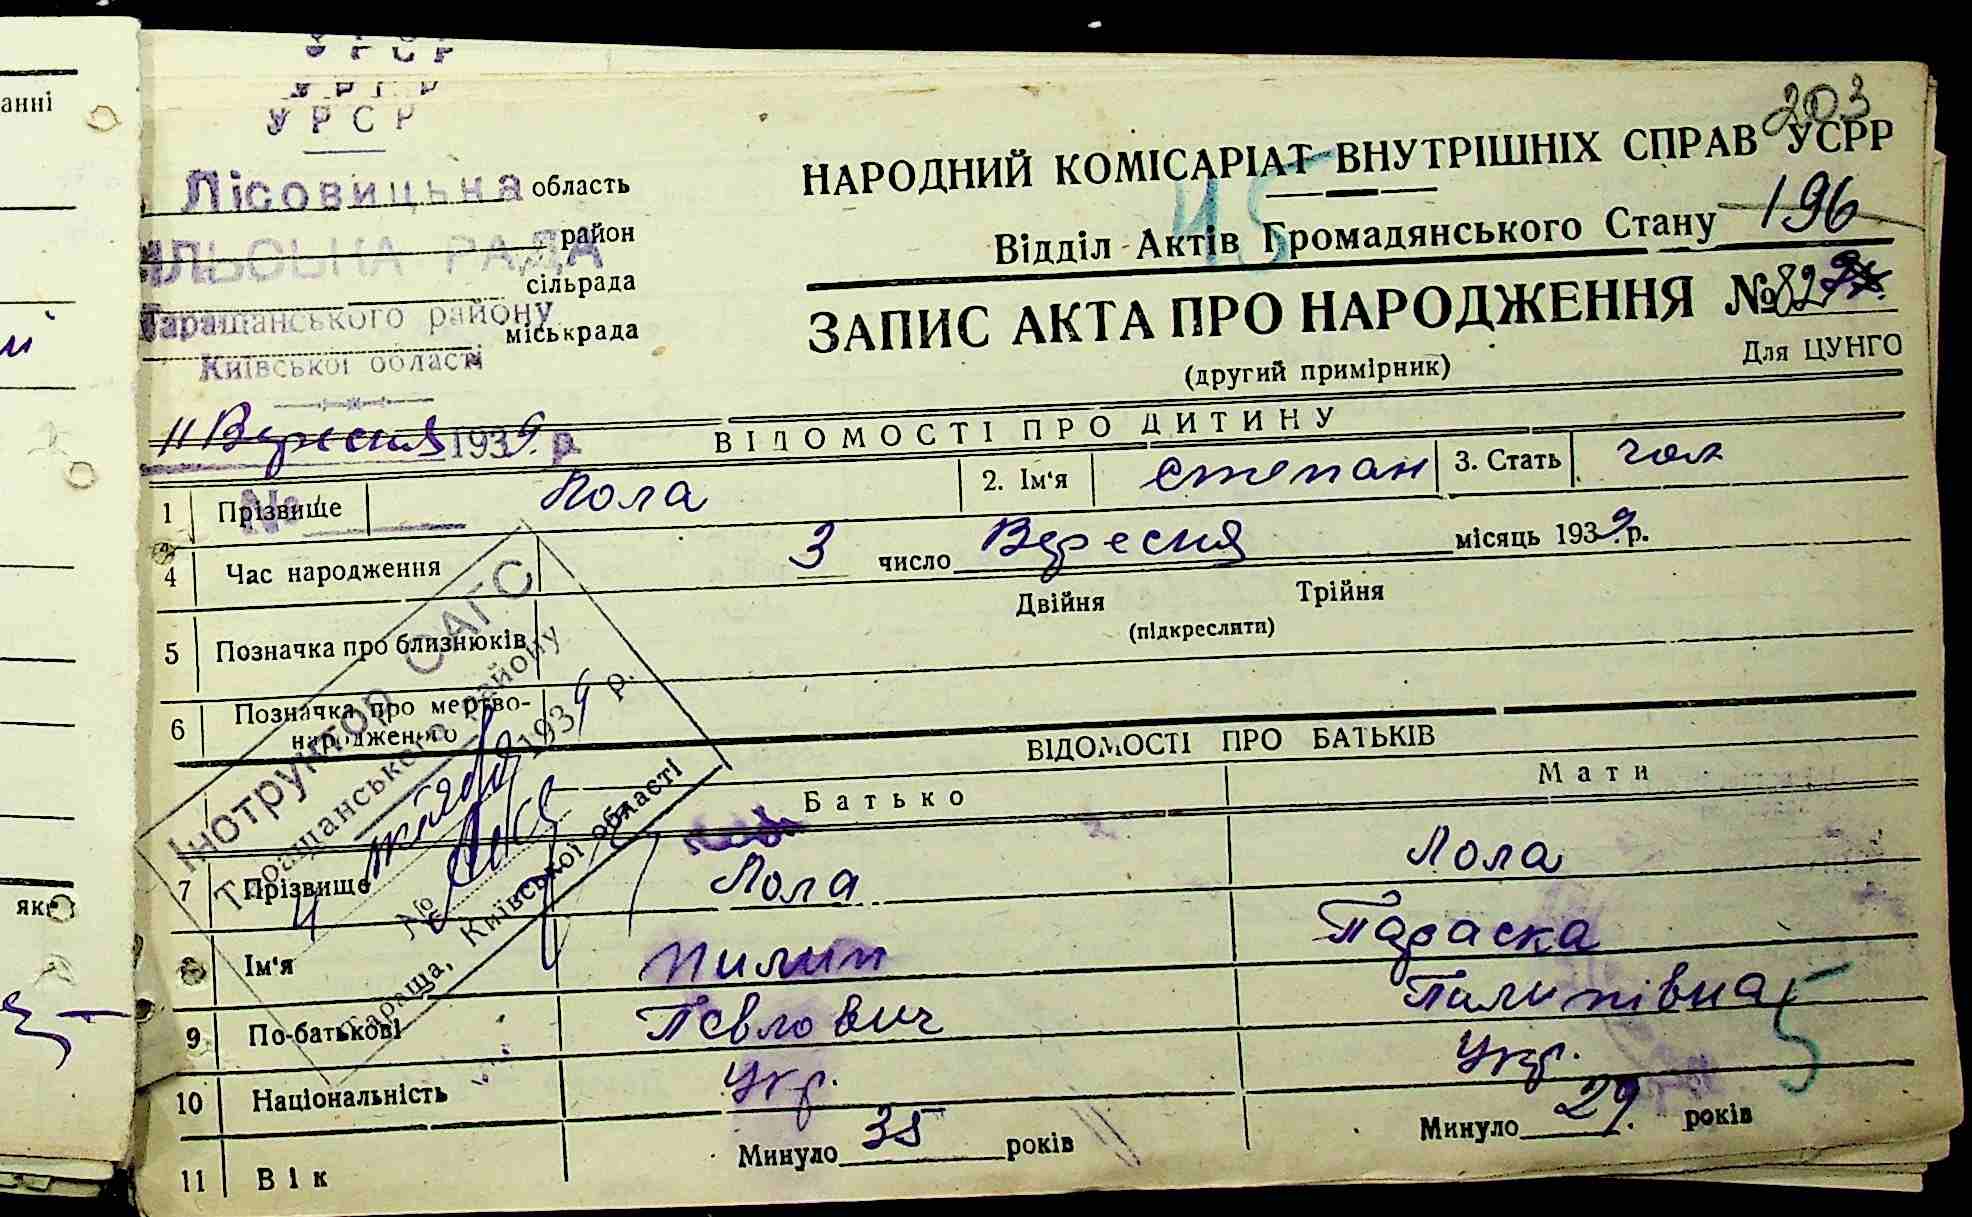 УРСР
УРСР
УРСР
анні
203
Лісовицька область
РАДА район
сільрада
Таращанського району міськрада
Київської області
11 Вересня 1939 р.
№
НАРОДНИЙ КОМІСАРІАТ ВНУТРІШНІХ СПРАВ УСРР
Відділ Актів Громадянського Стану 196
ЗАПИС АКТА ПРО НАРОДЖЕННЯ № 82
(другий примірник)
Для ЦУНГО
ВІДОМОСТІ ПРО ДИТИНУ
1 Прізвище Лола 2. Ім'я степан 3. Стать чол
4 Час народження 3 число Вересня місяць 1939 р.
5 Позначка про близнюків Двійня Трійня
(підкреслити)
6 Позначка про мертво-
народженого
Інструктор ОАГС
Таращанського району
1939 р.
№
Київської області
Тараща,
ВІДОМОСТІ ПРО БАТЬКІВ
Батько Мати
7 Прізвище Лола Лола
8 Ім'я Пилип Параска
9 По-батькові Певлович Пилипівна
5
10 Національність Укр. Укр.
11 Вік Минуло 35 років Минуло 29. років